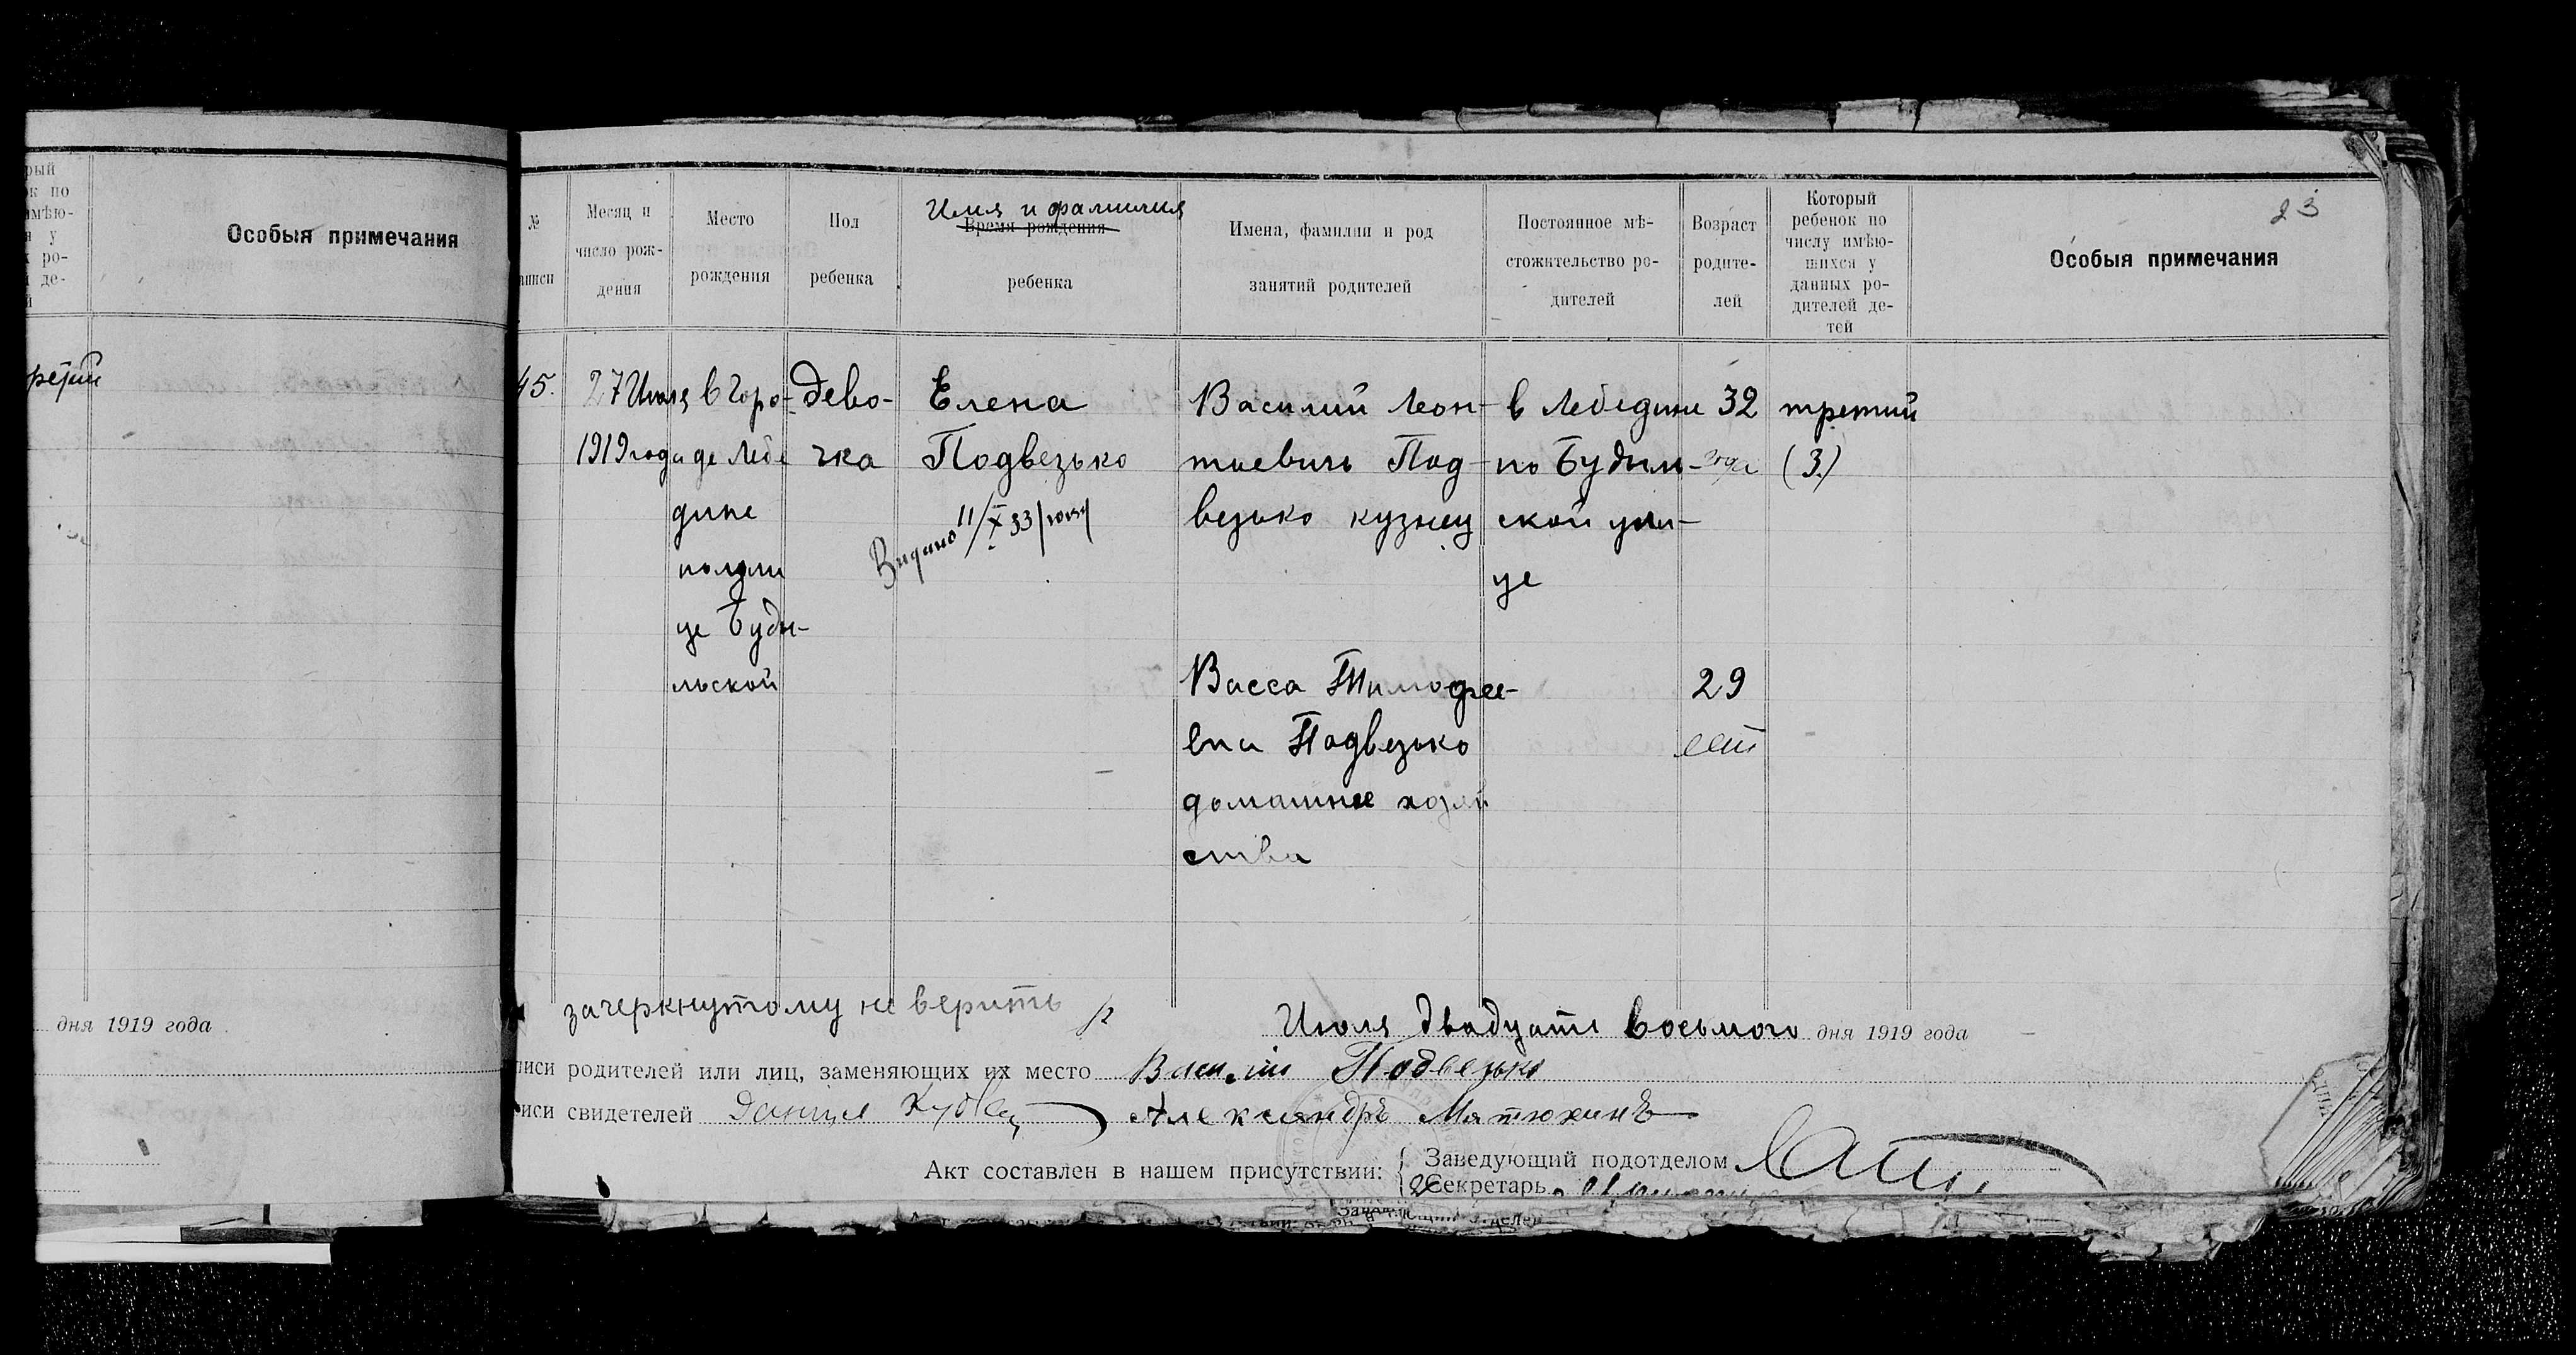 рый
к по
имѣю-
у
ро-
де-
й
Особыя примечания
третий
дня 1919 года
23
№
аписи
Месяц и
число рож-
дения
Место
рождения
Пол
ребенка
Имя и фамилия
Время рождения
ребенка
Имена, фамилии и род
занятий родителей
Постоянное мѣ-
стожительство ро-
дителей
Возраст
родите-
лей
Который
ребенок по
числу имѣю-
шихся у
данных ро-
дителей де-
тей
Особыя примечания
45.
27 Июля
1919 года
в горо-
де Лебе
дине
по ули
це Буды-
льской
дево-
чка
Елена
Подвезько
Выдано 11/X 33
Василий Леон-
тиевичъ Под-
везько кузнец
Васса Тимофе-
евна Подвезько
домашнее хозяй
ства
в Лебедине
по Будыль-
ской ули-
це
32
года
29
лет
третий
(3.)
зачеркнутому не верить
Июля двадцать восьмого дня 1919 года
писи родителей или лиц, заменяющих их место Василий Подвезько
иси свидетелей Данила Александръ Матюхинъ
Акт составлен в нашем присутствии:
Заведующий подотделом
Секретарь